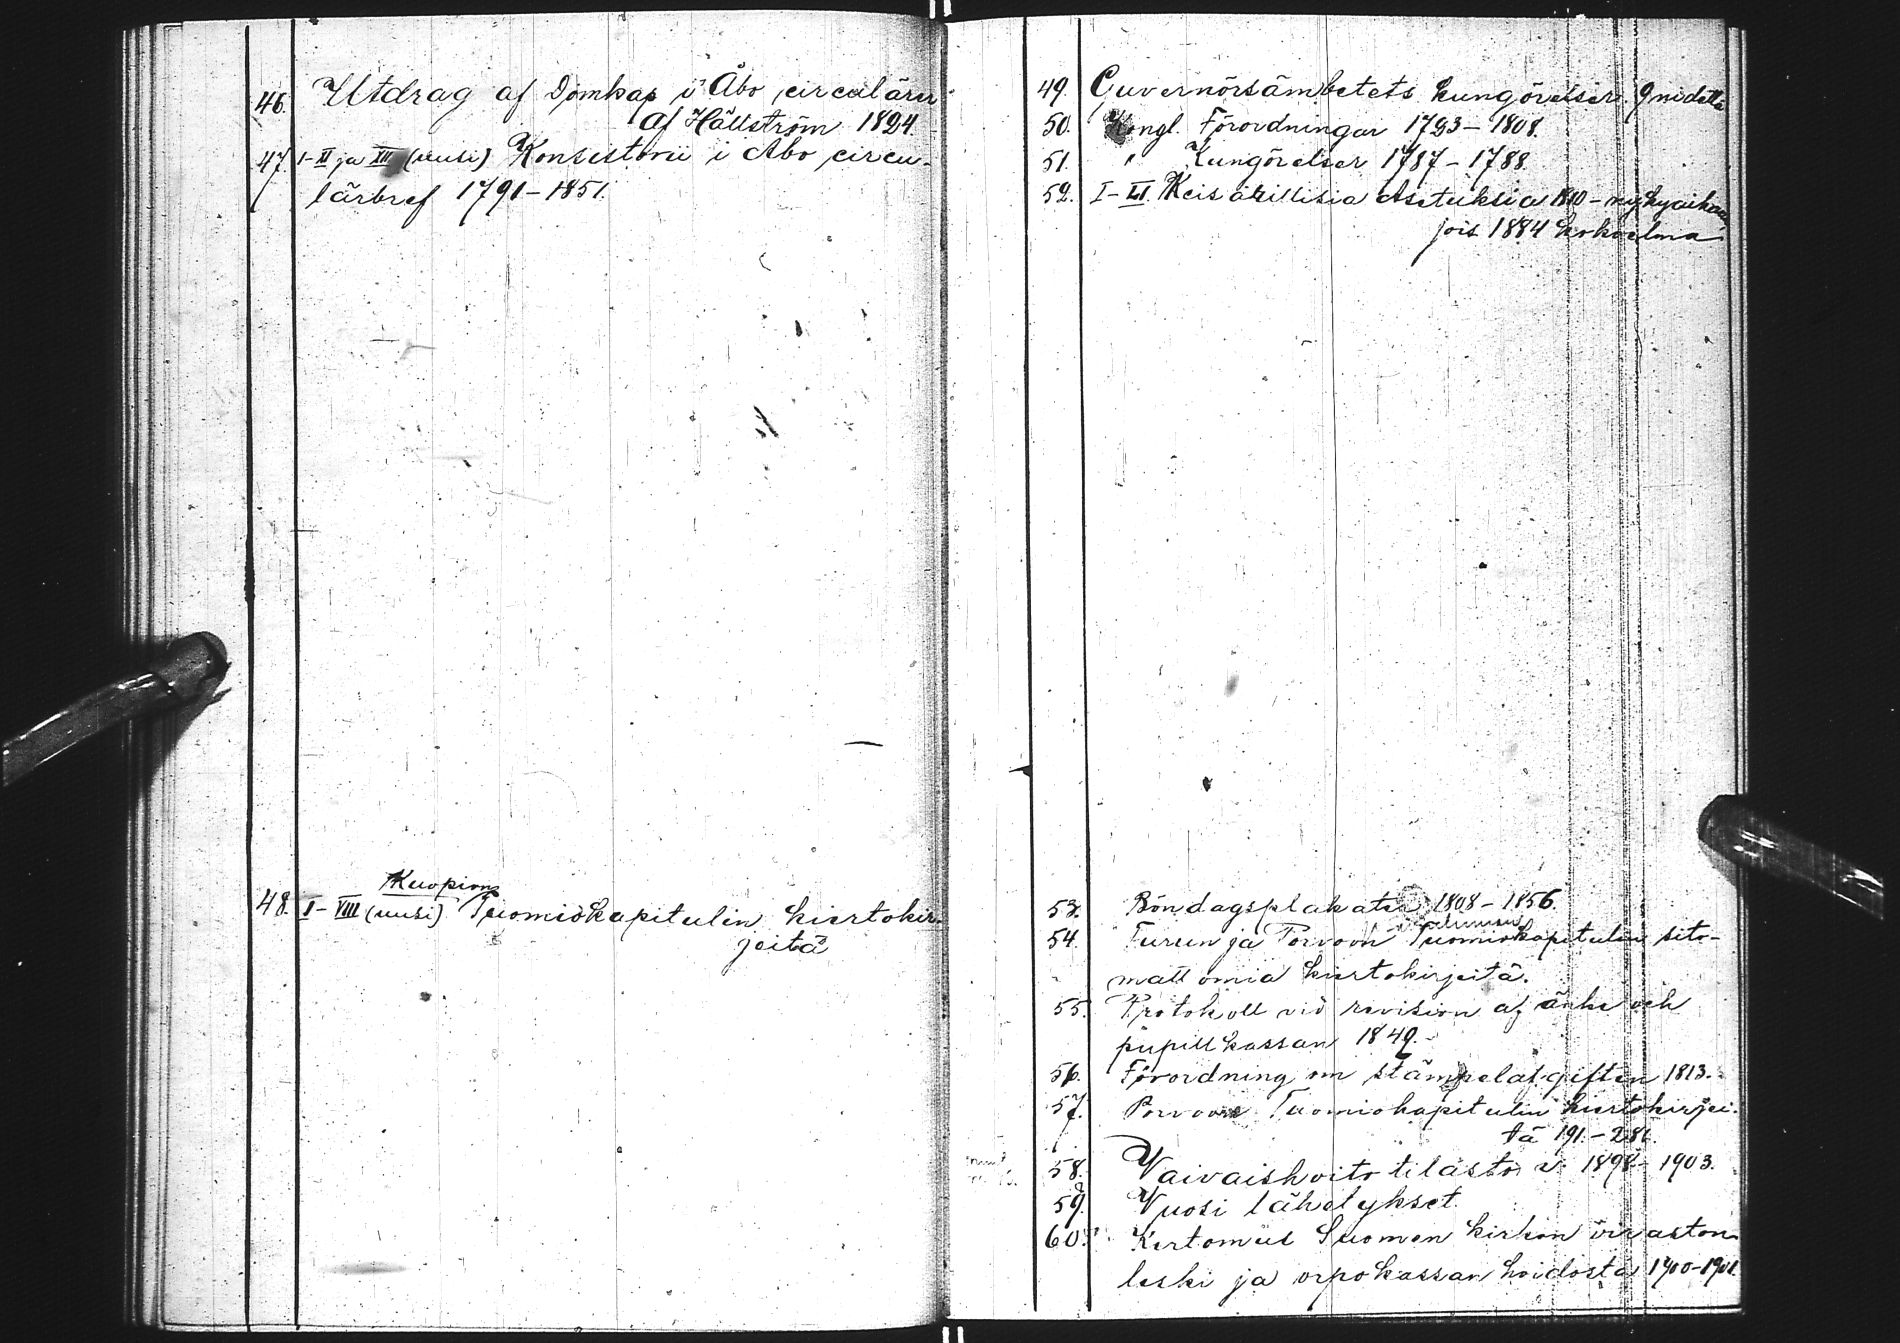 46. Utdrag af Domkap i Åbo circulärer
af Hällström 1824.
47. I-II ja XII (uusi) Konsistorii i Åbo circu-
lärbref 1791-1851.
Kuopion
48. I-VIII (uusi) Tuomiokapitulin kiertokir-
jeitä
49. Guvernörsämbetets kungörelser. 9 nidettä
50. Kongl. Förordningar 1793-1808.
51. " Kungörelser 1787-1788.
52. I-LI. Keisarillisia Asetuksia 1810-nykyaikaan
jois 1884 kokoelma
53. Böndagsplakater 1808-1856.
54. Turun ja Porvoon Tuomiokapitulin sito-
mattomia kiertokirjeitä.
55. Protokoll vid revision af änke och
pupillkassan 1849.-
56. Förordning om stämpelafgiften 1813.
57. Porvoon Tuomiokapitulin kiertokirjei-
tä 191.-281.
58. Vaivaishoito tilasto v. 1898-1903.
59. Vuosi lähetykset.
60. Kertomus Suomen kirkon viraston
leski ja orpokassan hoidosta 1900-1901.